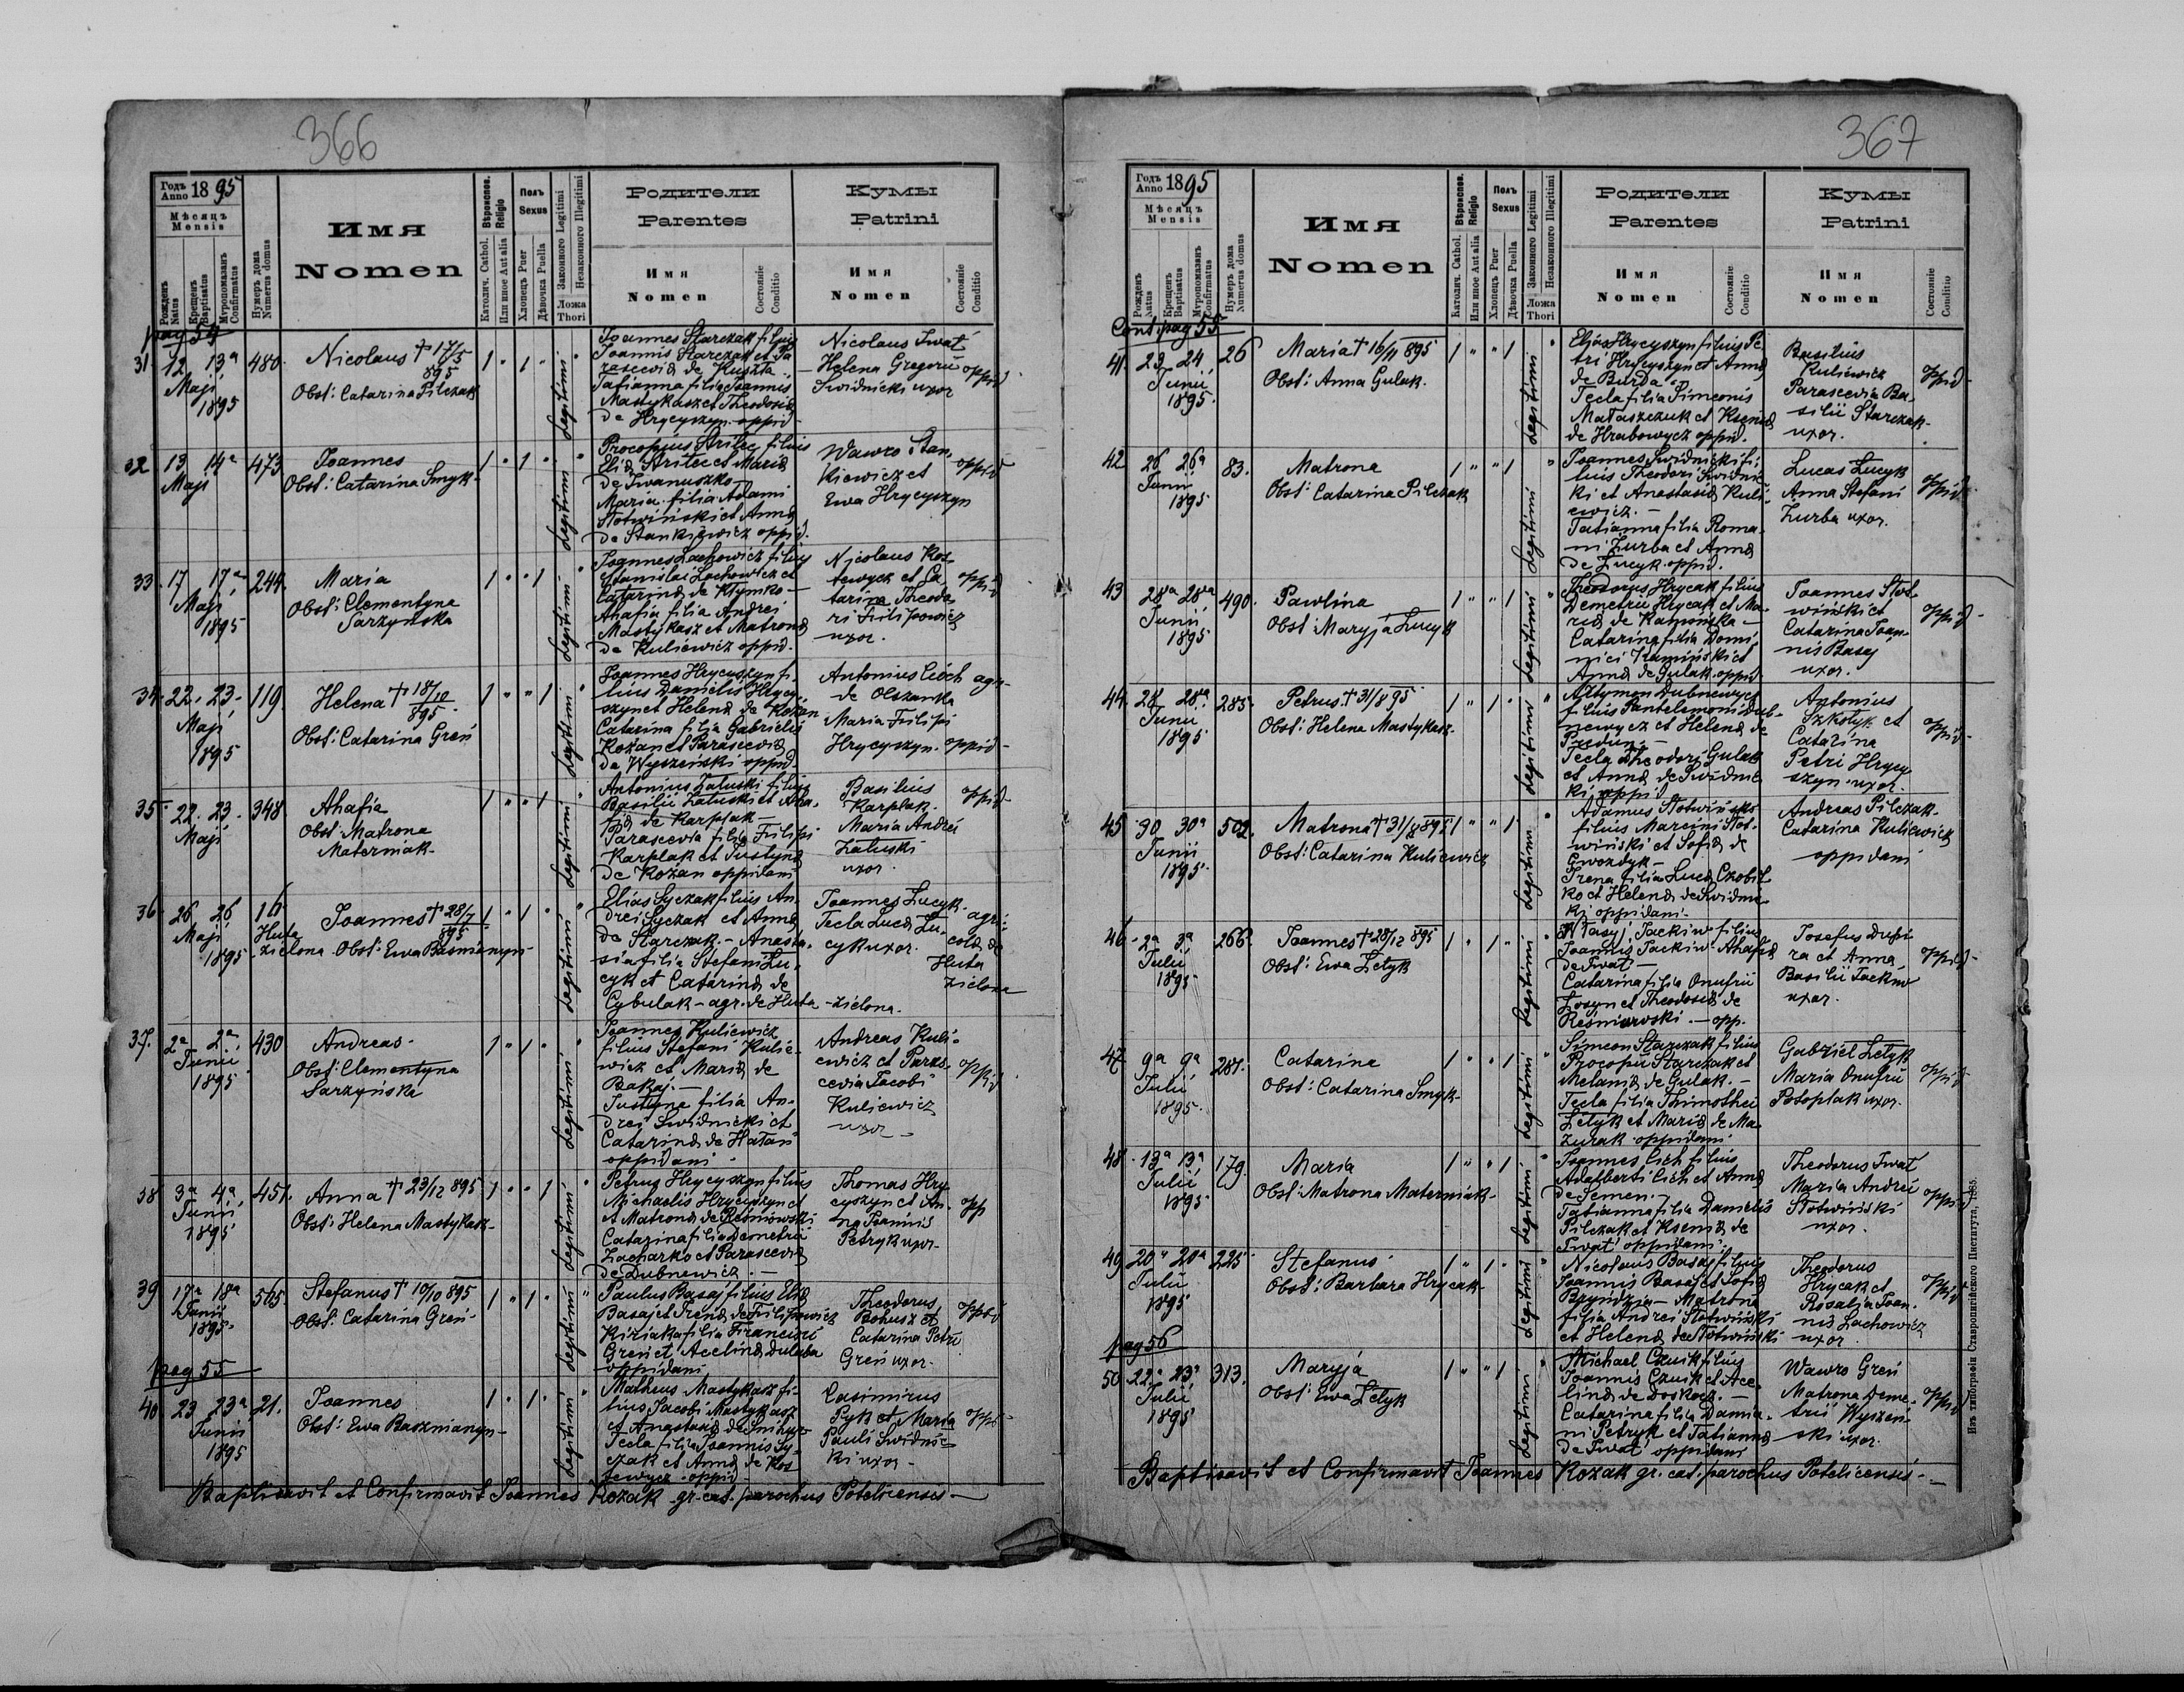 366
Годъ Anno 1895
Мѣсяцъ
Mensis
Рожденъ Natus
Крещенъ Baptisatus
Муропомазанъ Confirmatus
Нумеръ дома Numerus domus
Имя
Nomen
Вѣроиспов. Religio
Католич. Cathol.
Или иное Aut alia
Полъ Sexus
Хлопецъ Puer
Дѣвочка Puella
Законного Legitimi
Незаконного Illegitimi
Ложа Thori
Родители
Parentes
Имя
Nomen
Состояніе Conditio
Кумы
Patrini
Имя
Nomen
Состояніе Conditio
pag 54
31 12 13ª Maji 1895 480. Nicolaus † 17/5 895 1 " 1 " Legitimi "
Obst: Catarina Pilczak
Joannes Starczak filius
Joannis Starczak et Pa
rascevia de Kuszta.
Tatianna filia Joannis
Mastykasz et Theodosia
de Hrycyszyn oppid
Nicolaus Iwat
Helena Gregorii
Swidnicki uxor
oppid
32 13 14ª Maji 473 Joannes 1 " 1 " Legitimi "
Obst: Catarina Smyk
Procopius Strilec filius
Eliæ Strilec et Mariæ
de Iwanuszko
Maria filia Adami
Slotwiński et Annæ
de Stankiewicz oppid.
Wawro Stan
kiewicz et
Ewa Hrycyszyn
oppid
33. 17 17ª Maji 1895 244. Maria 1 " " 1 Legitimi "
Obst: Clementyna
Sarzynska
Joannes Lachowicz filius
Stanislai Lachowicz et
Catarinæ de Klymko
Ahafia filia Andrei
Mastykasz et Matronæ
de Kuliewicz oppid.
Nicolaus Kos
tewycz et Ca
tarina Theodo
ri Filipowicz
uxor.
oppid
34. 22. 23. Maji 1895 119. Helena † 18/10 895. 1 " " 1 Legitimi "
Obst: Catarina Greń
Joannes Hrycyszyn fi
lius Danielis Hrycy
szyn et Helenæ de Kozan
Catarina filia Gabrielis
Kozan et Parasceviæ
de Wyszeński oppid
Antonius Cioch agr
de Olszanka
Maria Filipi
Hrycyszyn. oppid
35 22. 23. Maji 348 Ahafia 1 " " 1 Legitimi "
Obst: Matrona
Materniak
Antonius Zaluski filius
Basilii Zaluski et Aha
fiæ de Karplak
Parascevia filia Filipi
Karplak et Justynæ
de Kozan oppidani
Basilius
Karplak.
Maria Andrei
Zaluski
uxor.
oppid
36 26 26 Maji 1895 16 Huta zielona Joannes † 28/7 895 1 " 1 " Legitimi "
Obst: Ewa Basmanyn
Elias Syczak filius An
drei Syczak et Annæ
de Starczak. Anasta
sia filia Stefani Lu
cyk et Catarinæ de
Cybulak - agr. de Huta - zielona.
Joannes Lucyk.
Tecla Lucæ Lu
cyk uxor.
agri
colæ de
Huta
zielona
37. 2ª 2ª Junii 1895 430 Andreas 1 " 1 " Legitimi "
Obst: Clementyna
Sarzyńska
Joannes Kuliewicz
filius Stefani Kulie
wicz et Mariæ de
Bakaj.
Justyna filia An
drei Swidnicki et
Catarinæ de Hałań
oppidani
Andreas Kuli
ewicz et Paras
cevia Jacobi
Kuliewicz
uxor
oppid
38 3ª 4ª Junii 1895 451. Anna † 23/12 895 1 " " 1 Legitimi "
Obst: Helena Mastykasz
Petrus Hrycyszyn filius
Michaelis Hrycyszyn et
et Matronæ de Reśniowski
Catarina filia Demetrii
Zacharko et Parasceviæ
de Dubnewicz.
Thomas Hry
cyszyn et An
na Joannis
Petryk uxor
opp
39 17ª 18ª Junii 1895 565. Stefanus † 10/10 895 1 " 1 " Legitimi "
Obst: Catarina Greń
Paulus Basaj filius Eliæ
Basaj et Irenæ de Filipowicz
Kiriaka filia Francisci
Greń et Acelinæ Dulaba
oppidani
Theodorus
Bohusz et
Catarina Petri
Greń uxor.
oppid
pag 55
40 23 23ª Junii 1895 21. Joannes 1 " 1 " Legitimi "
Obst: Ewa Baczmanyn
Matheus Mastykasz fi
lius Jacobi Mastykasz
et Anastasiæ de Snihur
Tecla filia Joannis Sy
czak et Annæ de Kos
tewycz oppid
Casimirus
Pyk et Maria
Pauli Swidnic
ki uxor
oppi
Baptisavit et Confirmavit Joannes Kozak gr. cat. parochus Potelicensis
367
Годъ Anno 1895
Мѣсяцъ
Mensis
Рожденъ Natus
Крещенъ Baptisatus
Муропомазанъ Confirmatus
Нумеръ дома Numerus domus
Имя
Nomen
Вѣроиспов. Religio
Католич. Cathol.
Или иное Aut alia
Полъ Sexus
Хлопецъ Puer
Дѣвочка Puella
Законного Legitimi
Незаконного Illegitimi
Ложа Thori
Родители
Parentes
Имя
Nomen
Состояніе Conditio
Кумы
Patrini
Имя
Nomen
Состояніе Conditio
Cont. pag 55
41. 23 24 Junii 1895. 26 Maria † 16/11 895 1 " " 1 Legitimi "
Obst: Anna Gulak.
Elias Hrycyszyn filius Pe
tri Hrycyszyn et Annæ
de Burda
Tecla filia Simeonis
Mataszczuk et Kseniæ
de Hrabowycz oppid.
Basilius
Kuliewicz
Parascevia Ba
silii Starczak
uxor.
oppid
42 26 26ª Junii 1895 83. Matrona 1 " " 1 Legitimi "
Obst: Catarina Pilczak
Joannes Swidnicki fi
lius Theodori Swidnic
ki et Anastasiæ Kuli
ewicz.
Tatianna filia Roma
ni Zurba et Annæ
de Lucyk oppid.
Lucas Lucyk
Anna Stefani
Zurba uxor.
oppid
43 28ª 28ª Junii 1895 490. Pawlina 1 " " 1 Legitimi "
Obst: Maryja Lucyk
Theodorus Hrycak filius
Demetrii Hrycak et Ma
riæ de Kaminska
Catarina filia Domi
nici Kamiński et
Annæ de Gulak oppid
Joannes Slot
wiński et
Catarina Joan
nis Basaj
uxor.
oppid
44 28 28ª Junii 1895 285. Petrus † 31/8 95 1 " 1 " Legitimi "
Obst: Helena Mastykasz.
Artymon Dubnewycz
filius Pantelemoni Dub
newycz et Helenæ de
Tecla Theodori Gulak
et Annæ de Swidnic
ki oppid
Antonius
Szkołyk et
Catarina
Petri Hrycy
szyn uxor.
oppid
45 30 30ª Junii 1895. 502. Matrona † 31/8 895 1 " " 1 Legitimi "
Obst: Catarina Kuliewicz
Adamus Slotwiński
filius Marcini Slot
wiński et Sofiæ de
Gwozdyk
Irena filia Lucæ Czobit
ko et Helenæ de Swidnic
ki oppidani
Andreas Pilczak
Catarina Kuliewicz
oppidani
46 2ª 3ª Julii 1895 266. Joannes † 28/12 895 1 " 1 " Legitimi "
Obst: Ewa Letyk
Wlasij Jackiw filius
Joannis Jackiw Ahafiæ
de Iwat
Catarina filia Onufrii
Losyn et Theodosiæ de
Reśniowski. - opp.
Josefus Dupi
ra et Anna
Basilii Jackiw
uxor.
oppid
47 9ª 9ª Julii 1895. 281. Catarina 1 " " 1 Legitimi "
Obst: Catarina Smyk
Simeon Starczak filius
Procopii Starczak et
Melaniæ de Gulak.
Tecla filia Thimothei
Letyk et Mariæ de Ma
zurak oppidani
Gabriel Letyk
Maria Onufrii
Potoplak uxor.
oppid
48 13ª 13ª Julii 1895 179. Maria 1 " " 1 Legitimi "
Obst: Matrona Materniak
Joannes Cich filius
Adalberti Cich et Annæ
de Semen.
Tatianna filia Danielis
Pilczak et Kseniæ de
Iwat oppidani.
Theodorus Iwat
Maria Andrei
Slotwiński
uxor.
oppid
49 20ª 20ª Julii 1895 225 Stefanus 1 " 1 " Legitimi "
Obst: Barbara Hrycak
Nicolaus Basaj filius
Joannis Basaj et Sofiæ
Bryndzia - Matrona
filia Andrei Slotwiński
et Helenæ de Slotwiński
Theodorus
Hrycak et
Rosalia Joan
nis Lachowicz
uxor
oppid
pag 56
50 22ª 23ª Julii 1895 313. Maryja 1 " " 1 Legitimi "
Obst: Ewa Letyk
Michael Czuik filius
Joannis Czuik et Ace
linæ de Doskocz.
Catarina filia Damia
ni Petryk et Tatiannæ
de Iwat oppidani
Wawro Greń
Matrona Deme
trii Wyszeń
ski uxor.
oppid
Baptisavit et Confirmavit Joannes Kozak gr. cat. parochus Potelicensis
Изъ типографіи Ставропигійского Института, 1885.